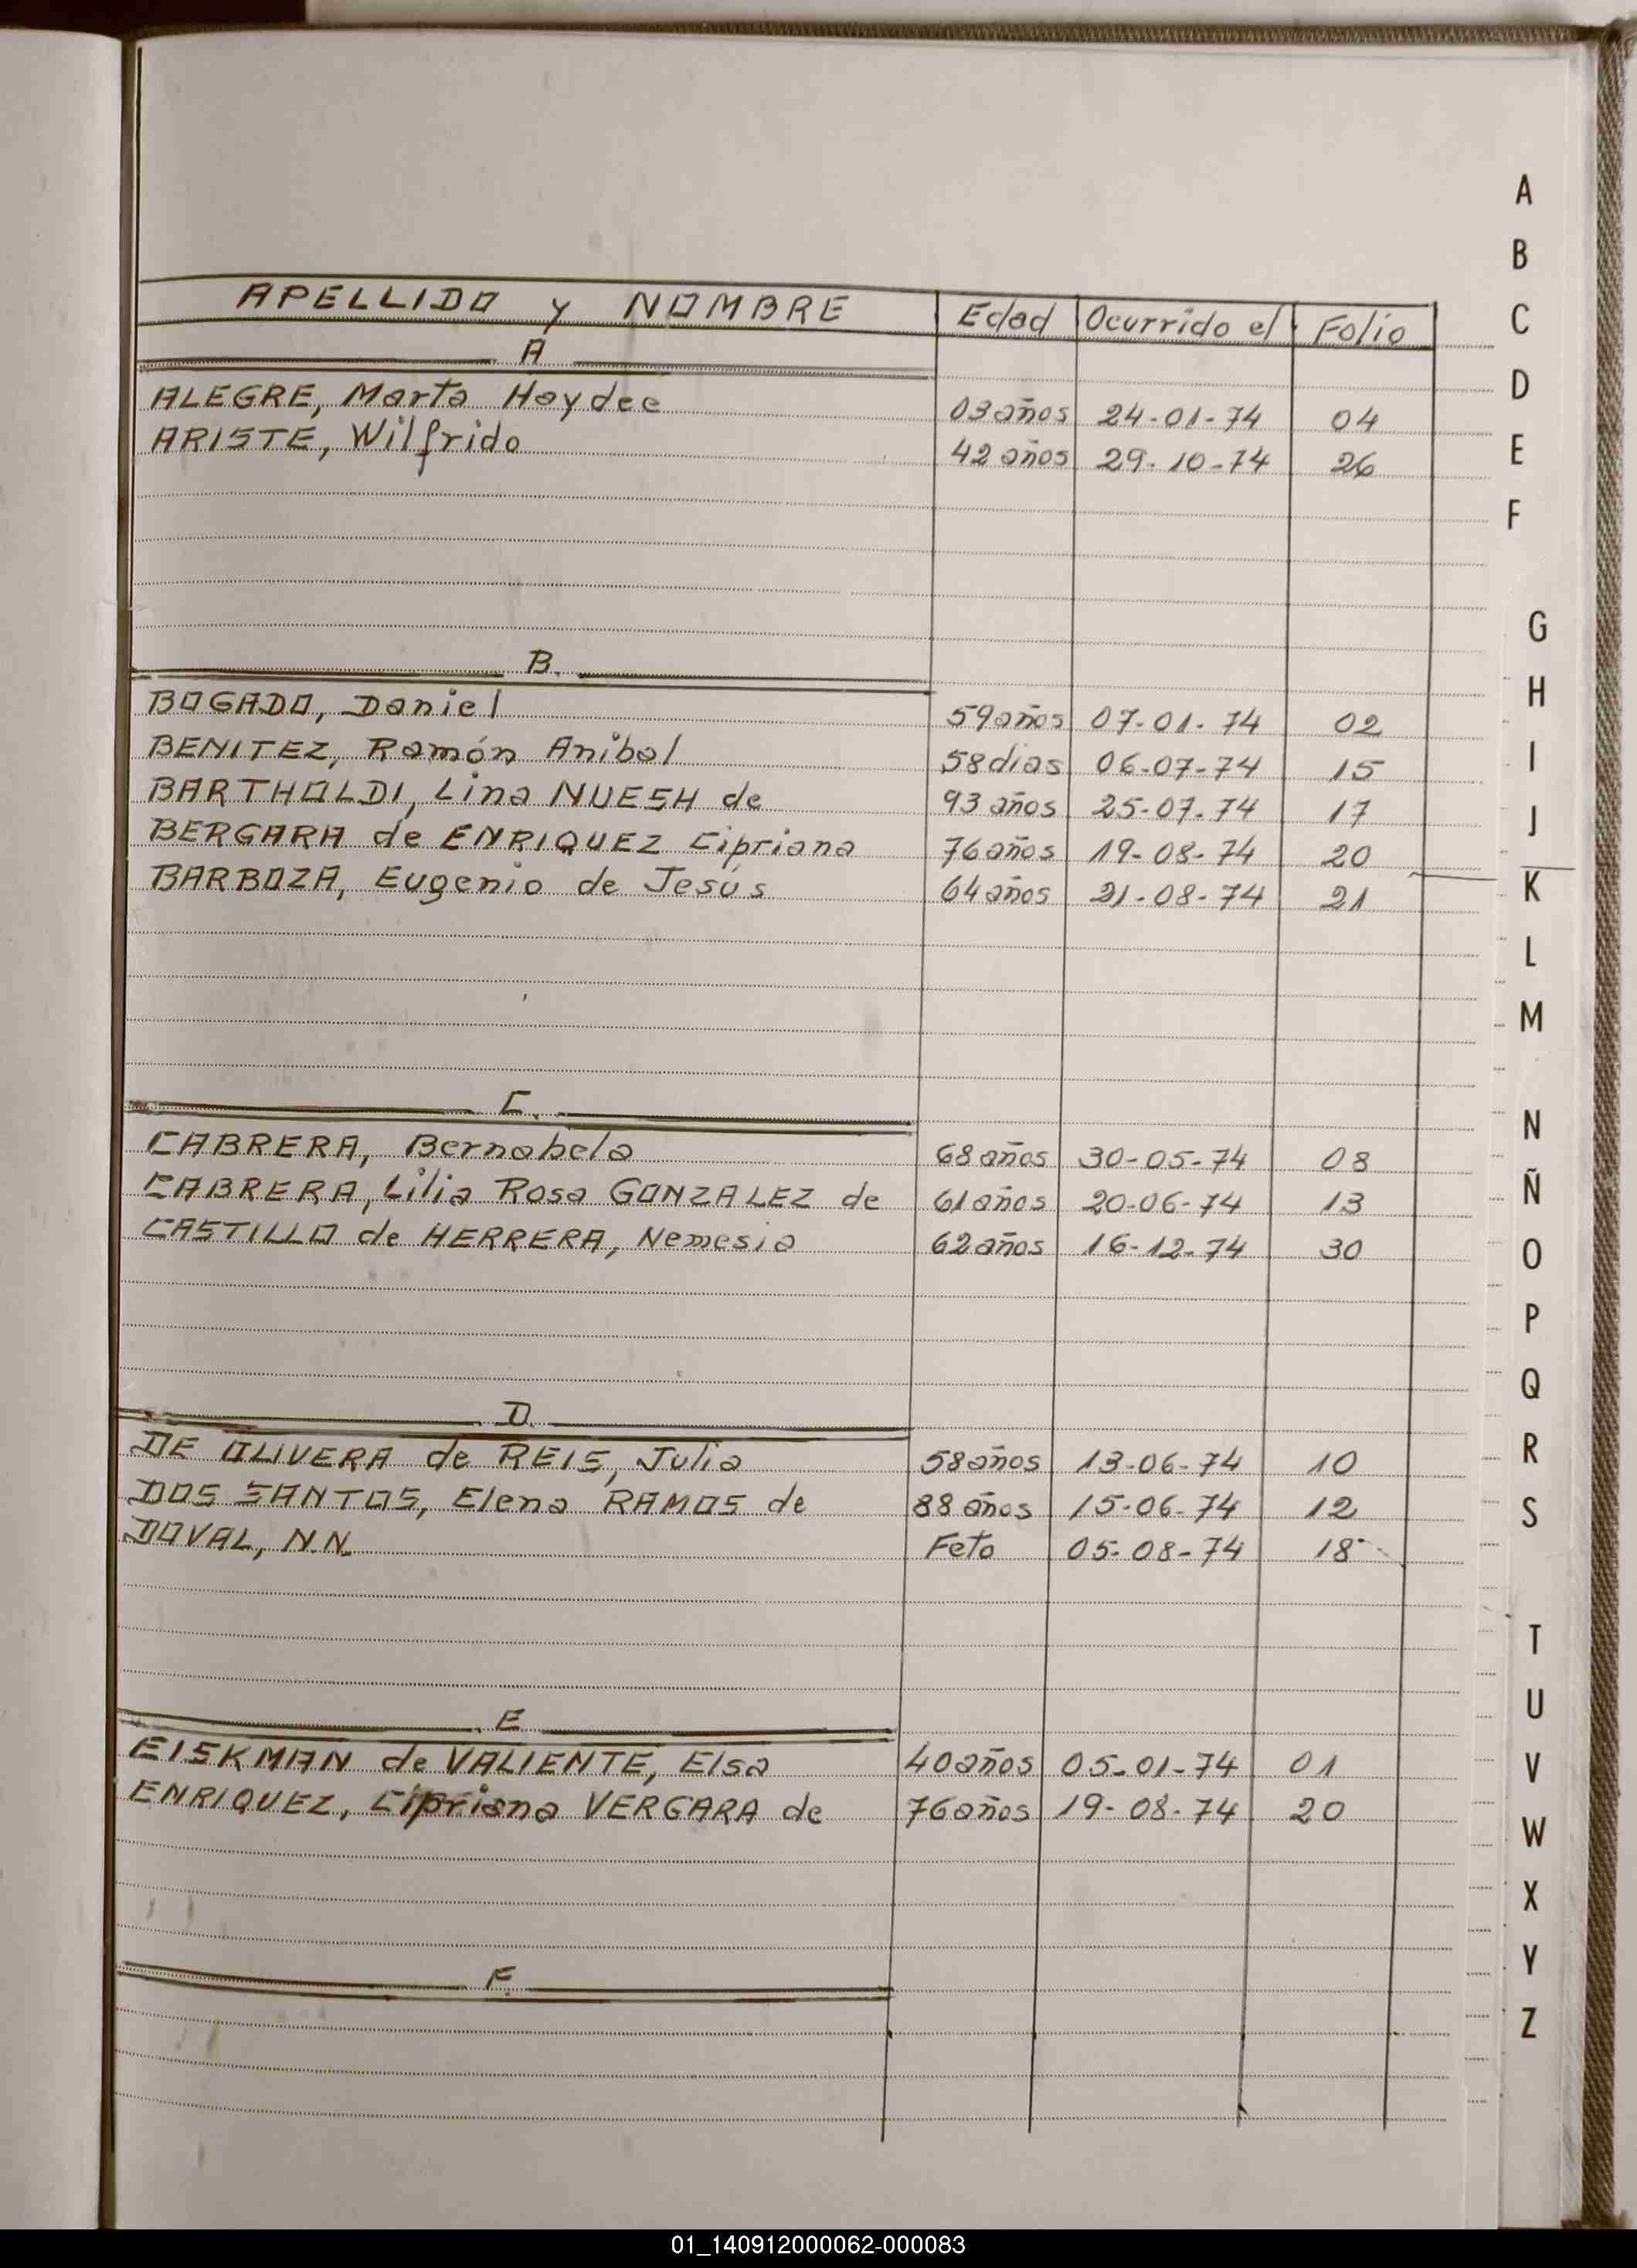 APELLIDO y NOMBRE Edad Ocurrido el Folio
A
ALEGRE, Marta Haydee 03 años 24-01-74 04
ARISTE, Wilfrido 42 años 29-10-74 26
B.
BOGADO, Daniel 59 años 07-01-74 02
BENITEZ, Ramón Anibal 58 dias 06-07-74 15
BARTHOLDI, Lina NUESH de 93 años 25-07-74 17
BERGARA de ENRIQUEZ Cipriana 76 años 19-08-74 20
BARBOZA, Eugenio de Jesús 64 años 21-08-74 21
C.
CABRERA, Bernabela 68 años 30-05-74 08
CABRERA, Lilia Rosa GONZALEZ de 61 años 20-06-74 13
CASTILLO de HERRERA, Nemesia 62 años 16-12-74 30
D.
DE OLIVERA de REIS, Julia 58 años 13-06-74 10
DOS SANTOS, Elena RAMOS de 88 años 15-06-74 12
DOVAL, N.N. Feto 05-08-74 18
E
EISKMAN de VALIENTE, Elsa 40 años 05-01-74 01
ENRIQUEZ, Cipriana VERGARA de 76 años 19-08-74 20
F.
A
B
C
D
E
F
G
H
I
J
K
L
M
N
Ñ
O
P
Q
R
S
T
U
V
W
X
Y
Z
01_140912000062-000083